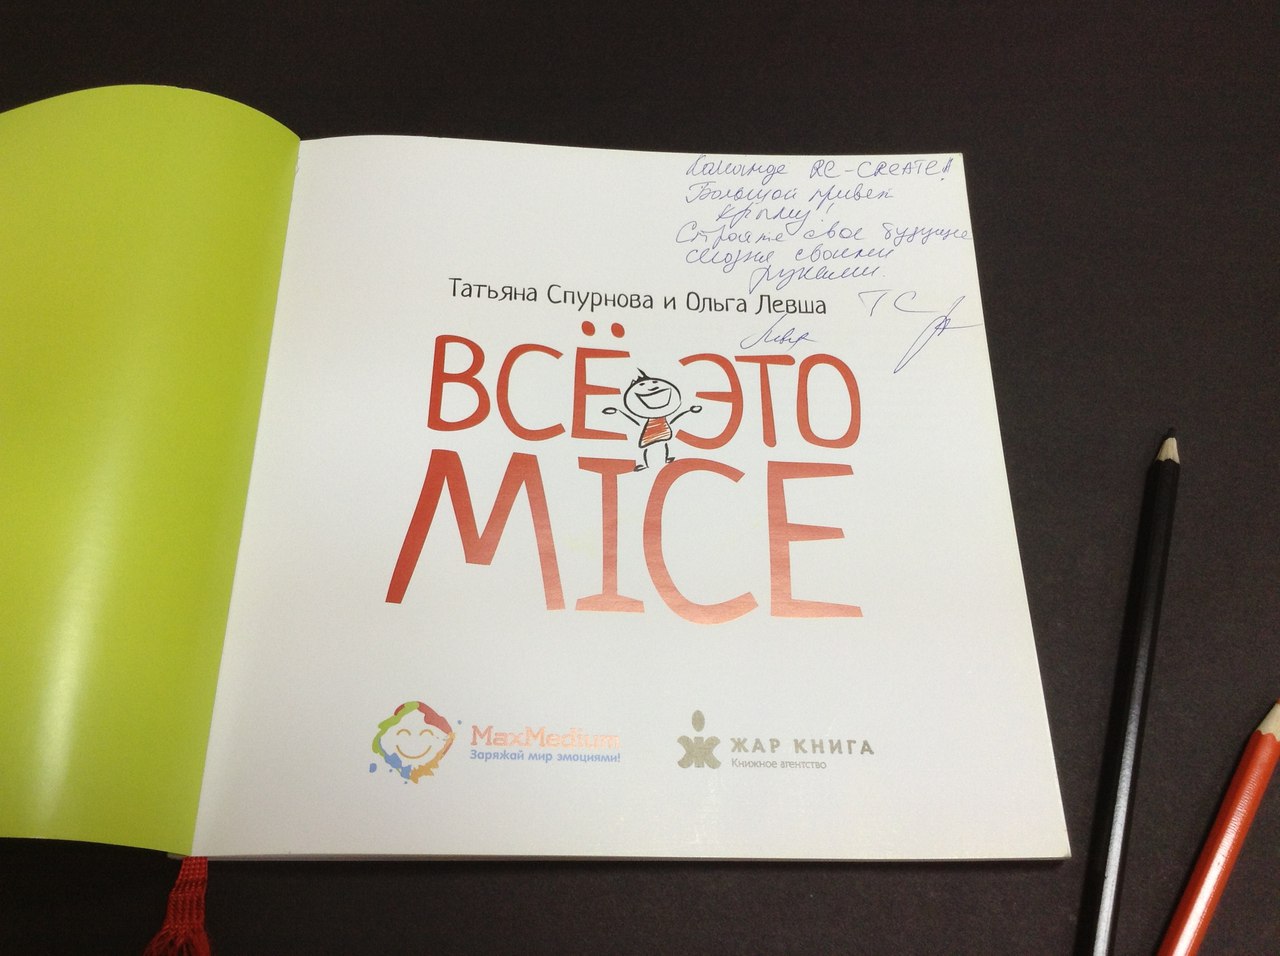 Команде RE-CREATE!!
Большой привет
Крыму!
Стройте свое будущее
сегодня своими
руками.
Татьяна Спурнова и Ольга Левша
ТС
ВСЁ ЭТО
MICE
MaxMedium
Заряжай мир эмоциями!
ЖАР КНИГА
Книжное агентство